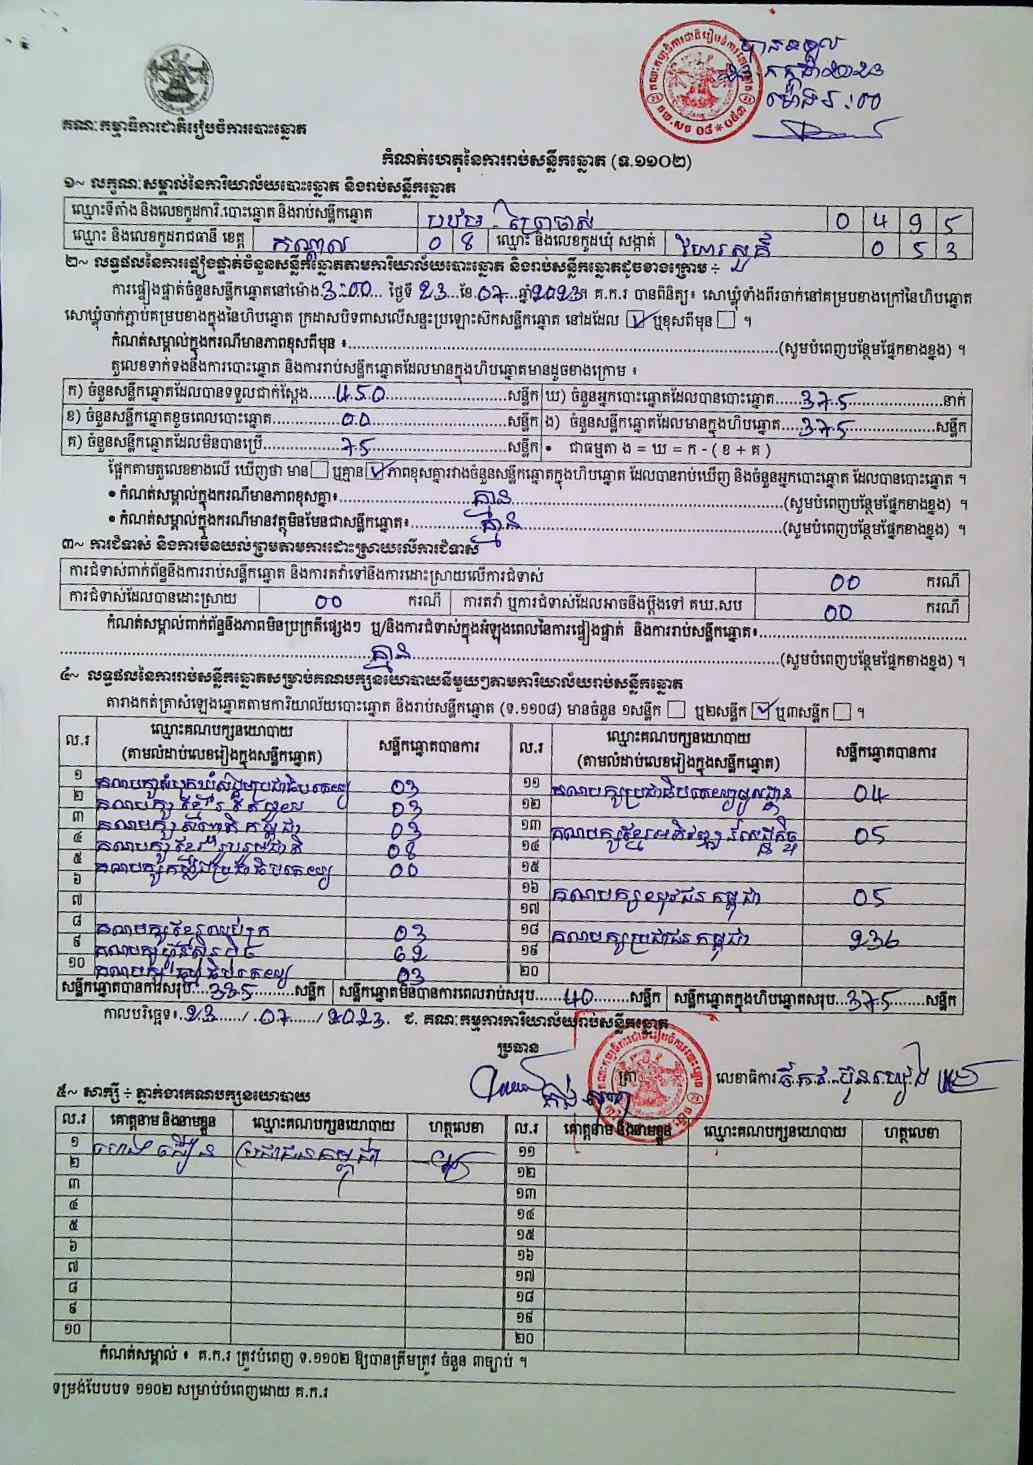 គណៈកម្មាធិការជាតិរៀបចំការបោះឆ្នោត
បានទទួល
កំណត់ហេតុនៃការរាប់សន្លឹកឆ្នោត (ទ.១១០២)
១~ លក្ខណៈសម្គាល់នៃការិយាល័យបោះឆ្នោត និងរាប់សន្លឹកឆ្នោត
ឈ្មោះទីតាំង និងលេខកូដការិ.បោះឆ្នោត និងរាប់សន្លឹកឆ្នោត 0 4 9 5
ឈ្មោះ និងលេខកូដរាជធានី ខេត្ត កណ្តាល 0 8 ឈ្មោះ និងលេខកូដឃុំ សង្កាត់ វិហារសួគ៌ 0 5 3
២~ លទ្ធផលនៃការផ្ទៀងផ្ទាត់ចំនួនសន្លឹកឆ្នោតតាមការិយាល័យបោះឆ្នោត និងរាប់សន្លឹកឆ្នោតដូចខាងក្រោម ÷
ការផ្ទៀងផ្ទាត់ចំនួនសន្លឹកឆ្នោតនៅម៉ោង 3:00 ថ្ងៃទី 23 ខែ 07 ឆ្នាំ 2023 គ.ក.រ បានពិនិត្យ៖ សោឃ្លុំទាំងពីរចាក់នៅគម្របខាងក្រៅនៃហិបឆ្នោត
សោឃ្លុំចាក់ភ្ជាប់គម្របខាងក្នុងនៃហិបឆ្នោត ក្រដាសបិទពាសលើសន្ទះប្រឡោះស៊កសន្លឹកឆ្នោត នៅដដែល ☑ ឬខុសពីមុន ☐ ។
កំណត់សម្គាល់ក្នុងករណីមានភាពខុសពីមុន ៖ (សូមបំពេញបន្ថែមផ្នែកខាងខ្នង) ។
តួលេខទាក់ទងនឹងការបោះឆ្នោត និងការរាប់សន្លឹកឆ្នោតដែលមានក្នុងហិបឆ្នោតមានដូចខាងក្រោម ៖
ក) ចំនួនសន្លឹកឆ្នោតដែលបានទទួលជាក់ស្តែង 450 សន្លឹក ឃ) ចំនួនអ្នកបោះឆ្នោតដែលបានបោះឆ្នោត 375 នាក់
ខ) ចំនួនសន្លឹកឆ្នោតខូចពេលបោះឆ្នោត 00 សន្លឹក ង) ចំនួនសន្លឹកឆ្នោតដែលមានក្នុងហិបឆ្នោត 375 សន្លឹក
គ) ចំនួនសន្លឹកឆ្នោតដែលមិនបានប្រើ 75 សន្លឹក • ជាធម្មតា ង = ឃ = ក - ( ខ + គ )
ផ្អែកតាមតួលេខខាងលើ ឃើញថា មាន ☐ ឬគ្មាន ☑ ភាពខុសគ្នារវាងចំនួនសន្លឹកឆ្នោតក្នុងហិបឆ្នោត ដែលបានរាប់ឃើញ និងចំនួនអ្នកបោះឆ្នោត ដែលបានបោះឆ្នោត ។
• កំណត់សម្គាល់ក្នុងករណីមានភាពខុសគ្នា៖ គ្មាន (សូមបំពេញបន្ថែមផ្នែកខាងខ្នង) ។
• កំណត់សម្គាល់ក្នុងករណីមានវត្ថុមិនមែនជាសន្លឹកឆ្នោត៖ គ្មាន (សូមបំពេញបន្ថែមផ្នែកខាងខ្នង) ។
៣~ ការជំទាស់ និងការមិនយល់ព្រមតាមការដោះស្រាយលើការជំទាស់
ការជំទាស់ពាក់ព័ន្ធនឹងការរាប់សន្លឹកឆ្នោត និងការតវ៉ាទៅនឹងការដោះស្រាយលើការជំទាស់ 00 ករណី
ការជំទាស់ដែលបានដោះស្រាយ 00 ករណី ការតវ៉ា ឬការជំទាស់ដែលអាចនឹងប្តឹងទៅ គឃ.សប 00 ករណី
កំណត់សម្គាល់ពាក់ព័ន្ធនឹងភាពមិនប្រក្រតីផ្សេងៗ ឬ/និងការជំទាស់ក្នុងអំឡុងពេលនៃការផ្ទៀងផ្ទាត់ និងការរាប់សន្លឹកឆ្នោត៖
គ្មាន (សូមបំពេញបន្ថែមផ្នែកខាងខ្នង) ។
៤~ លទ្ធផលនៃការរាប់សន្លឹកឆ្នោតសម្រាប់គណបក្សនយោបាយនីមួយៗតាមការិយាល័យរាប់សន្លឹកឆ្នោត
តារាងកត់ត្រាសំឡេងឆ្នោតតាមការិយាល័យបោះឆ្នោត និងរាប់សន្លឹកឆ្នោត (ទ.១១០៨) មានចំនួន ១សន្លឹក ☐ ឬ២សន្លឹក ☑ ឬ៣សន្លឹក ☐ ។
ល.រ ឈ្មោះគណបក្សនយោបាយ (តាមលំដាប់លេខរៀងក្នុងសន្លឹកឆ្នោត) សន្លឹកឆ្នោតបានការ ល.រ ឈ្មោះគណបក្សនយោបាយ (តាមលំដាប់លេខរៀងក្នុងសន្លឹកឆ្នោត) សន្លឹកឆ្នោតបានការ
១ គណបក្សសំបុកឃ្មុំសង្គមប្រជាធិបតេយ្យ 03 ១១ គណបក្សប្រជាធិបតេយ្យមូលដ្ឋាន 04
២ 03 ១២
៣ គណបក្សសញ្ជាតិកម្ពុជា 03 ១៣ គណបក្សខ្មែរអភិវឌ្ឍន៍សេដ្ឋកិច្ច 05
៤ គណបក្សខ្មែររួបរួមជាតិ 08 ១៤
៥ 00 ១៥
៦ ១៦ គណបក្សយុវជនកម្ពុជា 05
៧ ១៧
៨ គណបក្សខ្មែរឈប់ក្រ 03 ១៨ គណបក្សប្រជាជនកម្ពុជា 236
៩ គណបក្សហ៊្វុនស៊ិនប៉ិច 62 ១៩
១០ គណបក្សធម្មាធិបតេយ្យ 03 ២០
សន្លឹកឆ្នោតបានការសរុប 335 សន្លឹក សន្លឹកឆ្នោតមិនបានការពេលរាប់សរុប 40 សន្លឹក សន្លឹកឆ្នោតក្នុងហិបឆ្នោតសរុប 375 សន្លឹក
កាលបរិច្ឆេទ៖ 23 / 07 / 2023. ជ. គណៈកម្មការការិយាល័យរាប់សន្លឹកឆ្នោត
ប្រធាន
ត្រា លេខាធិការ
៥~ សាក្សី ÷ ភ្នាក់ងារគណបក្សនយោបាយ
ល.រ គោត្តនាម និងនាមខ្លួន ឈ្មោះគណបក្សនយោបាយ ហត្ថលេខា ល.រ គោត្តនាម និងនាមខ្លួន ឈ្មោះគណបក្សនយោបាយ ហត្ថលេខា
១ ប្រជាជនកម្ពុជា ១១
២ ១២
៣ ១៣
៤ ១៤
៥ ១៥
៦ ១៦
៧ ១៧
៨ ១៨
៩ ១៩
១០ ២០
កំណត់សម្គាល់ ៖ គ.ក.រ ត្រូវបំពេញ ទ.១១០២ ឱ្យបានត្រឹមត្រូវ ចំនួន ៣ច្បាប់ ។
ទម្រង់បែបបទ ១១០២ សម្រាប់បំពេញដោយ គ.ក.រ